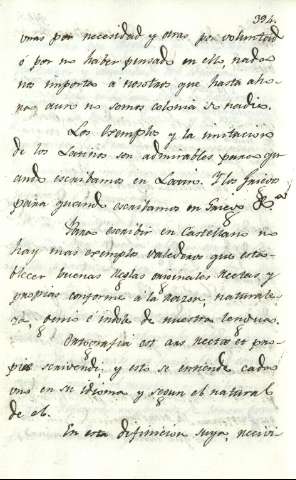 394.
unas por necesidad y otras por voluntad
ó por no haber pensado en ello, nada
nos importa á nosotros que hasta aho-
ra aun no somos colonia de nadie.
Los exemplos y la imitacion
de los Latinos son admirables para qu
ando escribamos en Latin. Y los Griegos
para quando escribamos en Griego
Para escribir en Castellano no
hay mas exemplos valederos que esta-
blecer buenas Reglas originales rectas, y
propias conforme á la razon, naturale-
za, genio é indole de nuestra lengua.
Ortografia est ars recte et pro-
pie scrivendi; y esto se entiende cada
uno en su idioma y segun el natural
de el.
En esta difinicion suya, recivi